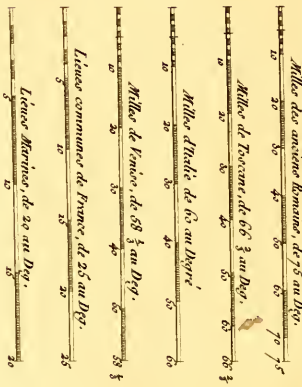 Milles des anciens Romains, de 75 au Deg.
10 20 30 40 50 60 70 75
Milles de Toscane, de 66 2/3 au Deg.
10 20 30 40 50 60 66 2/3
Milles d'Italie de 60 au Degré
10 20 30 40 50 60
Milles de Venise, de 58 2/3 au Deg.
10 20 30 40 50 58 2/3
Lieues communes de France, de 25 au Deg.
5 10 15 20 25
Lieues Marines, de 20 au Deg.
5 10 15 20